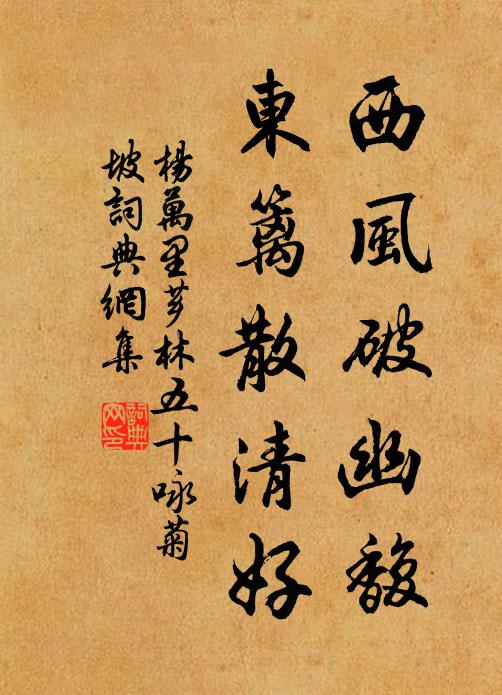 西風破幽馥
東籬散清好
楊萬里芗林五十咏菊
坡詞典網集
詞典網印